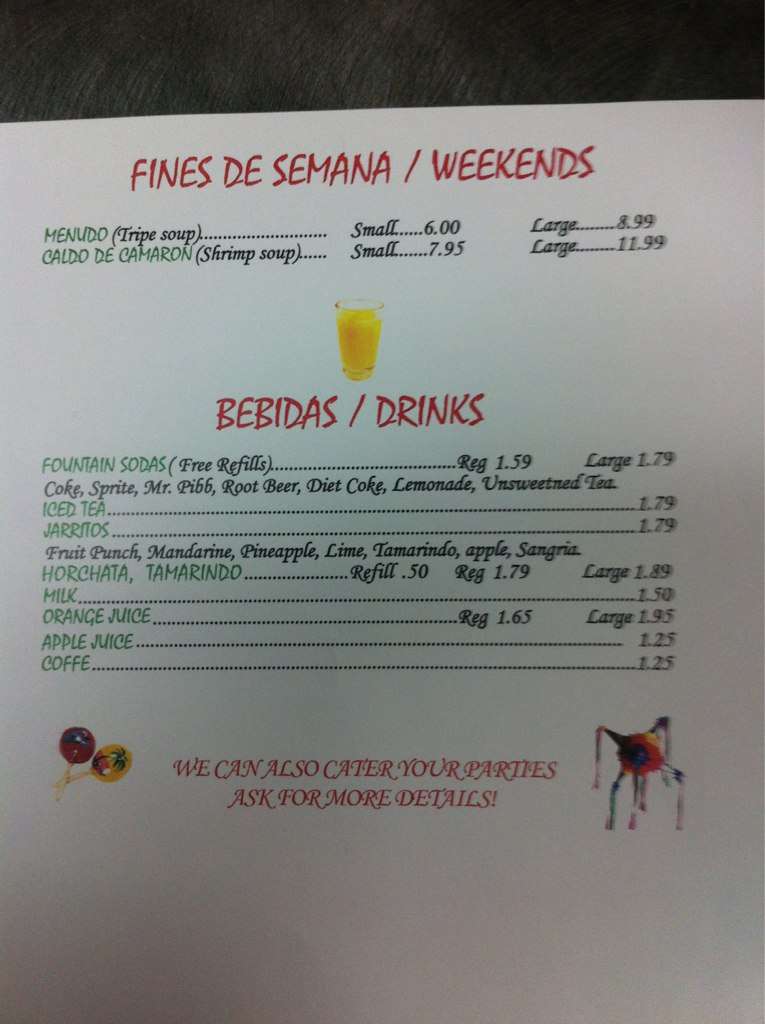 FINES DE SEMANA / WEEKENDS
MENUDO (Tripe soup)............................ Small......6.00 Large.........8.99
CALDO DE CAMARON (Shrimp soup)...... Small.......7.95 Large.........11.99
BEBIDAS / DRINKS
FOUNTAIN SODAS ( Free Refills)..........................................Reg 1.59 Large 1.79
Coke, Sprite, Mr. Pibb, Root Beer, Diet Coke, Lemonade, Unsweetned Tea.
ICED TEA........................................................................................1.79
JARRITOS.......................................................................................1.79
Fruit Punch, Mandarine, Pineapple, Lime, Tamarindo, apple, Sangria.
HORCHATA, TAMARINDO.......................Refill .50 Reg 1.79 Large 1.89
MILK..............................................................................................1.50
ORANGE JUICE...................................................Reg 1.65 Large 1.95
APPLE JUICE................................................................................. 1.25
COFFE...........................................................................................1.25
WE CAN ALSO CATER YOUR PARTIES
ASK FOR MORE DETAILS!